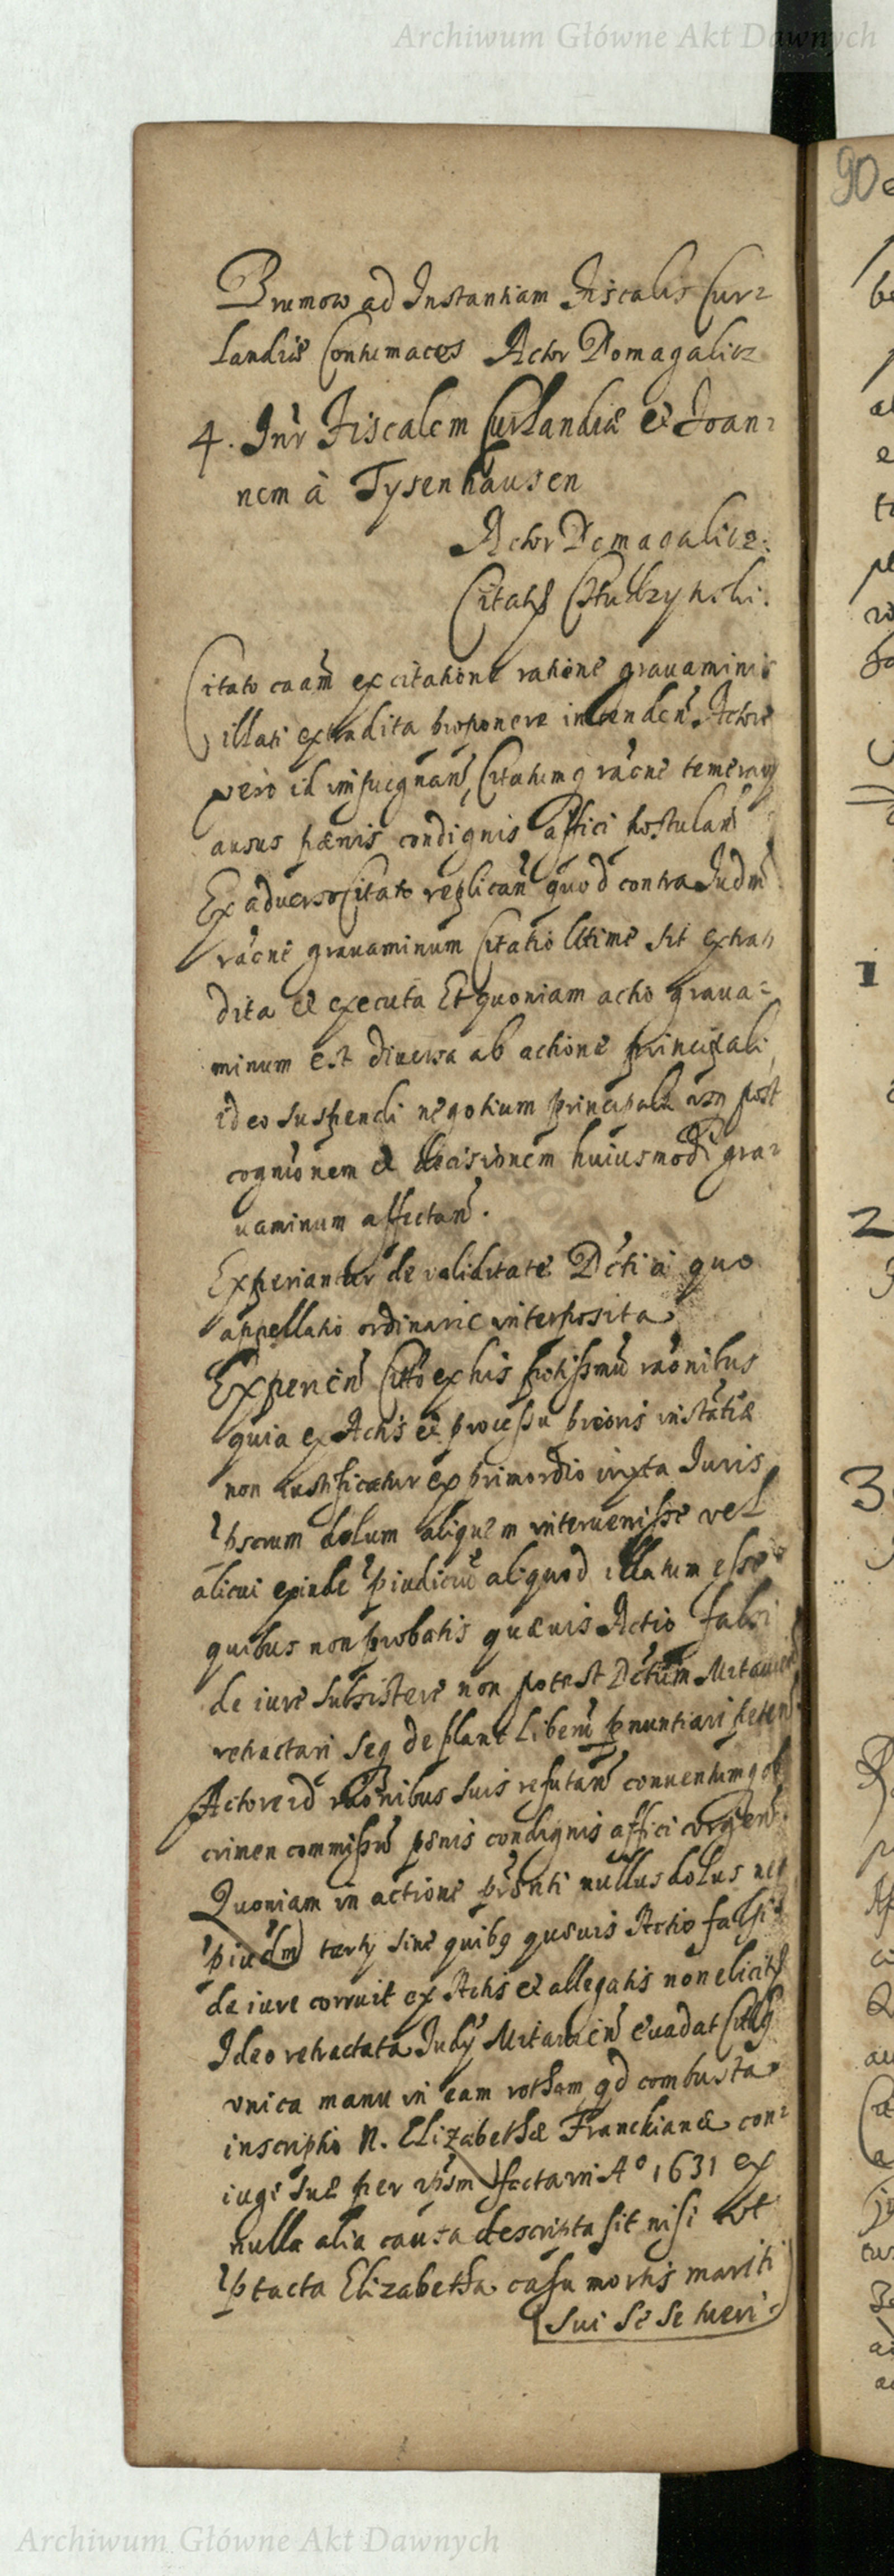 Archiwum Główne Akt Dawnych
90
Brunow ad Instantiam Fiscalis Cur-
landiæ Contumaces Actor Domagalicz
4. Intr Fiscalem Curlandiæ et Joan-
nem à Tysenhausen
Actor Domagalicz.
Citato caam ex citatione ratione grauaminis
illati extradita proponere intenden Actore
vero id impugnan, Citatumq racne temerarij
ausus pænis condignis affici postulan
Ex aduerso Citato replican quod contra Judm
racne grauaminum Citatio ltime sit extra
dita et executa Et quoniam actio graua-
minum est diuersa ab actione principali,
ideo suspendi negotium principale post
cognionem et decisionem huiusmodi gra-
uaminum affectan.
Experiantur de validitate Dcti à quo
appellatio ordinarie interposita
Experien Citto ex his potissimu raonibus
quia ex Actis et processu prioris instãtiæ
non iustificatur ex primordio iuxta Juris
pscrum dolum aliquem interuenisse vel
alicui exinde piudiciu aliquod illatum esse
quibus non probatis quæuis Actio falsi
de iure subsistere non potest Dctum Mitauien
retractari seq de plano liberu pnuntiari peten
Actore id raonibus suis refutan conuentumq ob
crimen commissu pænis condignis affici vrgen.
Quoniam in actione prsnti nullus dolus nec
piudm tertij sine quibq quæuis Actio falsi
de iure corruit ex Actis et allegatis non elicit
Ideo retractata Judij Mitauien euadat Cittq
vnica manu in eam rotham qd combusta
inscriptio N. Elizabethæ Franckianæ con-
iugi suæ per ipsm facta in Ao 1631 ex
nulla alia causa descripta sit nisi vt
ptacta Elizabetha casu mortis mariti
sui se se tueri
Archiwum Główne Akt Dawnych